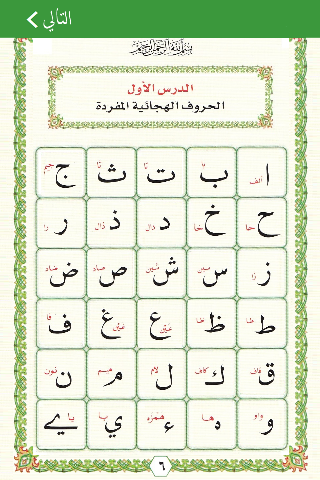 التالي
بسم الله الرحمن الرحيم
الدرس الأول
الحروف الهجائية المفردة
ا الف ب با ت تا ث ثا ج جيم
ح حا خ خا د دال ذ ذال ر را
ز زا س سين ش شين ص صاد ض ضاد
ط طا ظ ظا ع عين غ غين ف فا
ق قاف ك كاف ل لام م ميم ن نون
و واو ه ها ء همزه ي يا ے يا
٦